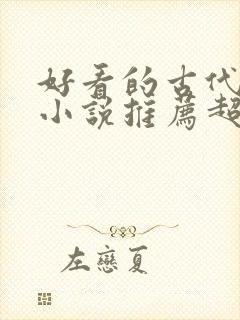 好看的古代
小說推薦超
左戀夏